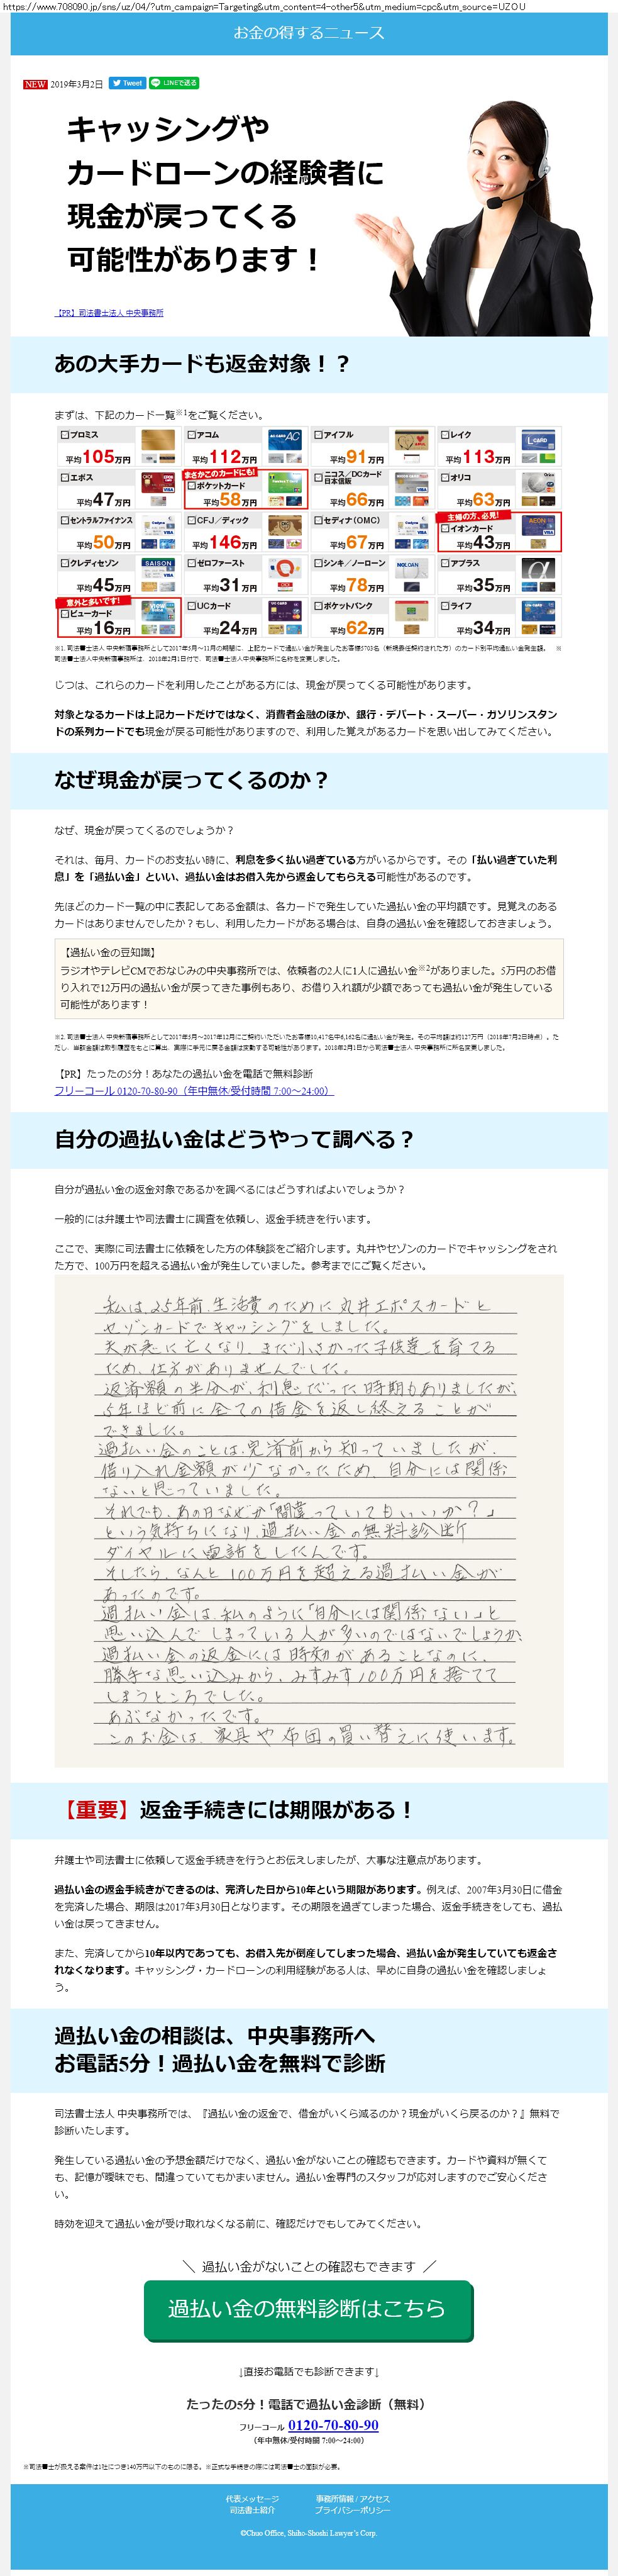 https://www.708090.jp/sns/uz/04/?utm_campaign=Targeting&utm_content=4-other5&utm_medium=cpc&utm_source=UZOU
お金の得するニュース
NEW 2019年3月2日 Tweet LINEで送る
キャッシングや
カードローンの経験者に
現金が戻ってくる
可能性があります！
【PR】司法書士法人 中央事務所
あの大手カードも返金対象！？
まずは、下記のカード一覧※1をご覧ください。
プロミス 平均105万円
アコム 平均112万円
アイフル 平均91万円
レイク 平均113万円
エポス 平均47万円
まさかこのカードにも!
ポケットカード 平均58万円
ニコス／DCカード 日本信販 平均66万円
オリコ 平均63万円
セントラルファイナンス 平均50万円
CFJ／ディック 平均146万円
セディナ(OMC) 平均67万円
主婦の方、必見!
イオンカード 平均43万円
クレディセゾン 平均45万円
ゼロファースト 平均31万円
シンキ／ノーローン 平均78万円
アプラス 平均35万円
意外と多いです!
ビューカード 平均16万円
UCカード 平均24万円
ポケットバンク 平均62万円
ライフ 平均34万円
※1. 司法■士法人 中央新宿事務所として2017年5月～11月の期間に、上記カードで過払い金が発生したお客様5703名（新規委任契約された方）のカード別平均過払い金発生額。 ※
司法■士法人中央新宿事務所は、2018年2月1日付で、司法■士法人中央事務所に名称を変更しました。
じつは、これらのカードを利用したことがある方には、現金が戻ってくる可能性があります。
対象となるカードは上記カードだけではなく、消費者金融のほか、銀行・デパート・スーパー・ガソリンスタン
ドの系列カードでも現金が戻る可能性がありますので、利用した覚えがあるカードを思い出してみてください。
なぜ現金が戻ってくるのか？
なぜ、現金が戻ってくるのでしょうか？
それは、毎月、カードのお支払い時に、利息を多く払い過ぎている方がいるからです。その「払い過ぎていた利
息」を「過払い金」といい、過払い金はお借入先から返金してもらえる可能性があるのです。
先ほどのカード一覧の中に表記してある金額は、各カードで発生していた過払い金の平均額です。見覚えのある
カードはありませんでしたか？もし、利用したカードがある場合は、自身の過払い金を確認しておきましょう。
【過払い金の豆知識】
ラジオやテレビCMでおなじみの中央事務所では、依頼者の2人に1人に過払い金※2がありました。5万円のお借
り入れで12万円の過払い金が戻ってきた事例もあり、お借り入れ額が少額であっても過払い金が発生している
可能性があります！
※2. 司法■士法人 中央新宿事務所として2017年5月～2017年12月にご契約いただいたお客様10,417名中6,162名に過払い金が発生。その平均額は約127万円（2018年7月2日時点）。た
だし、当該金額は取引履歴をもとに算出、実際に手元に戻る金額は変動する可能性があります。2018年2月1日から司法■士法人 中央事務所に所名変更しました。
【PR】たったの5分！あなたの過払い金を電話で無料診断
フリーコール 0120-70-80-90（年中無休/受付時間 7:00～24:00）
自分の過払い金はどうやって調べる？
自分が過払い金の返金対象であるかを調べるにはどうすればよいでしょうか？
一般的には弁護士や司法書士に調査を依頼し、返金手続きを行います。
ここで、実際に司法書士に依頼をした方の体験談をご紹介します。丸井やセゾンのカードでキャッシングをされ
た方で、100万円を超える過払い金が発生していました。参考までにご覧ください。
私は、25年前、生活費のために丸井エポスカードと
セゾンカードでキャッシングをしました。
夫が急に亡くなり、まだ小さかった子供達を育てる
ため、仕方がありませんでした。
返済額の半分が、利息だった時期もありましたが、
5年ほど前に全ての借金を返し終えることが
できました。
過払い金のことは、完済前から知っていましたが、
借り入れ金額が少なかったため、自分には関係
ないと思っていました。
それでも、あの日なぜか「間違っていてもいいか？」
という気持ちになり、過払い金の無料診断
ダイヤルに電話をしたんです。
そしたら、なんと100万円を超える過払い金が
あったのです。
過払い金は、私のように「自分には関係ない」と
思い込んでしまっている人が多いのではないでしょうか。
過払い金の返金には時効があることなのに、
勝手な思い込みから、みすみす100万円を捨てて
しまうところでした。
あぶなかったです。
このお金は、家具や布団の買い替えに使います。
【重要】返金手続きには期限がある！
弁護士や司法書士に依頼して返金手続きを行うとお伝えしましたが、大事な注意点があります。
過払い金の返金手続きができるのは、完済した日から10年という期限があります。例えば、2007年3月30日に借金
を完済した場合、期限は2017年3月30日となります。その期限を過ぎてしまった場合、返金手続きをしても、過払
い金は戻ってきません。
また、完済してから10年以内であっても、お借入先が倒産してしまった場合、過払い金が発生していても返金さ
れなくなります。キャッシング・カードローンの利用経験がある人は、早めに自身の過払い金を確認しましょ
う。
過払い金の相談は、中央事務所へ
お電話5分！過払い金を無料で診断
司法書士法人 中央事務所では、『過払い金の返金で、借金がいくら減るのか？現金がいくら戻るのか？』無料で
診断いたします。
発生している過払い金の予想金額だけでなく、過払い金がないことの確認もできます。カードや資料が無くて
も、記憶が曖昧でも、間違っていてもかまいません。過払い金専門のスタッフが応対しますのでご安心くださ
い。
時効を迎えて過払い金が受け取れなくなる前に、確認だけでもしてみてください。
＼ 過払い金がないことの確認もできます ／
過払い金の無料診断はこちら
↓直接お電話でも診断できます↓
たったの5分！電話で過払い金診断（無料）
フリーコール 0120-70-80-90
（年中無休/受付時間 7:00～24:00）
※司法■士が扱える案件は1社につき140万円以下のものに限る。※正式な手続きの際には司法■士の面談が必要。
代表メッセージ 事務所情報 / アクセス
司法書士紹介 プライバシーポリシー
©Chuo Office, Shiho-Shoshi Lawyer's Corp.